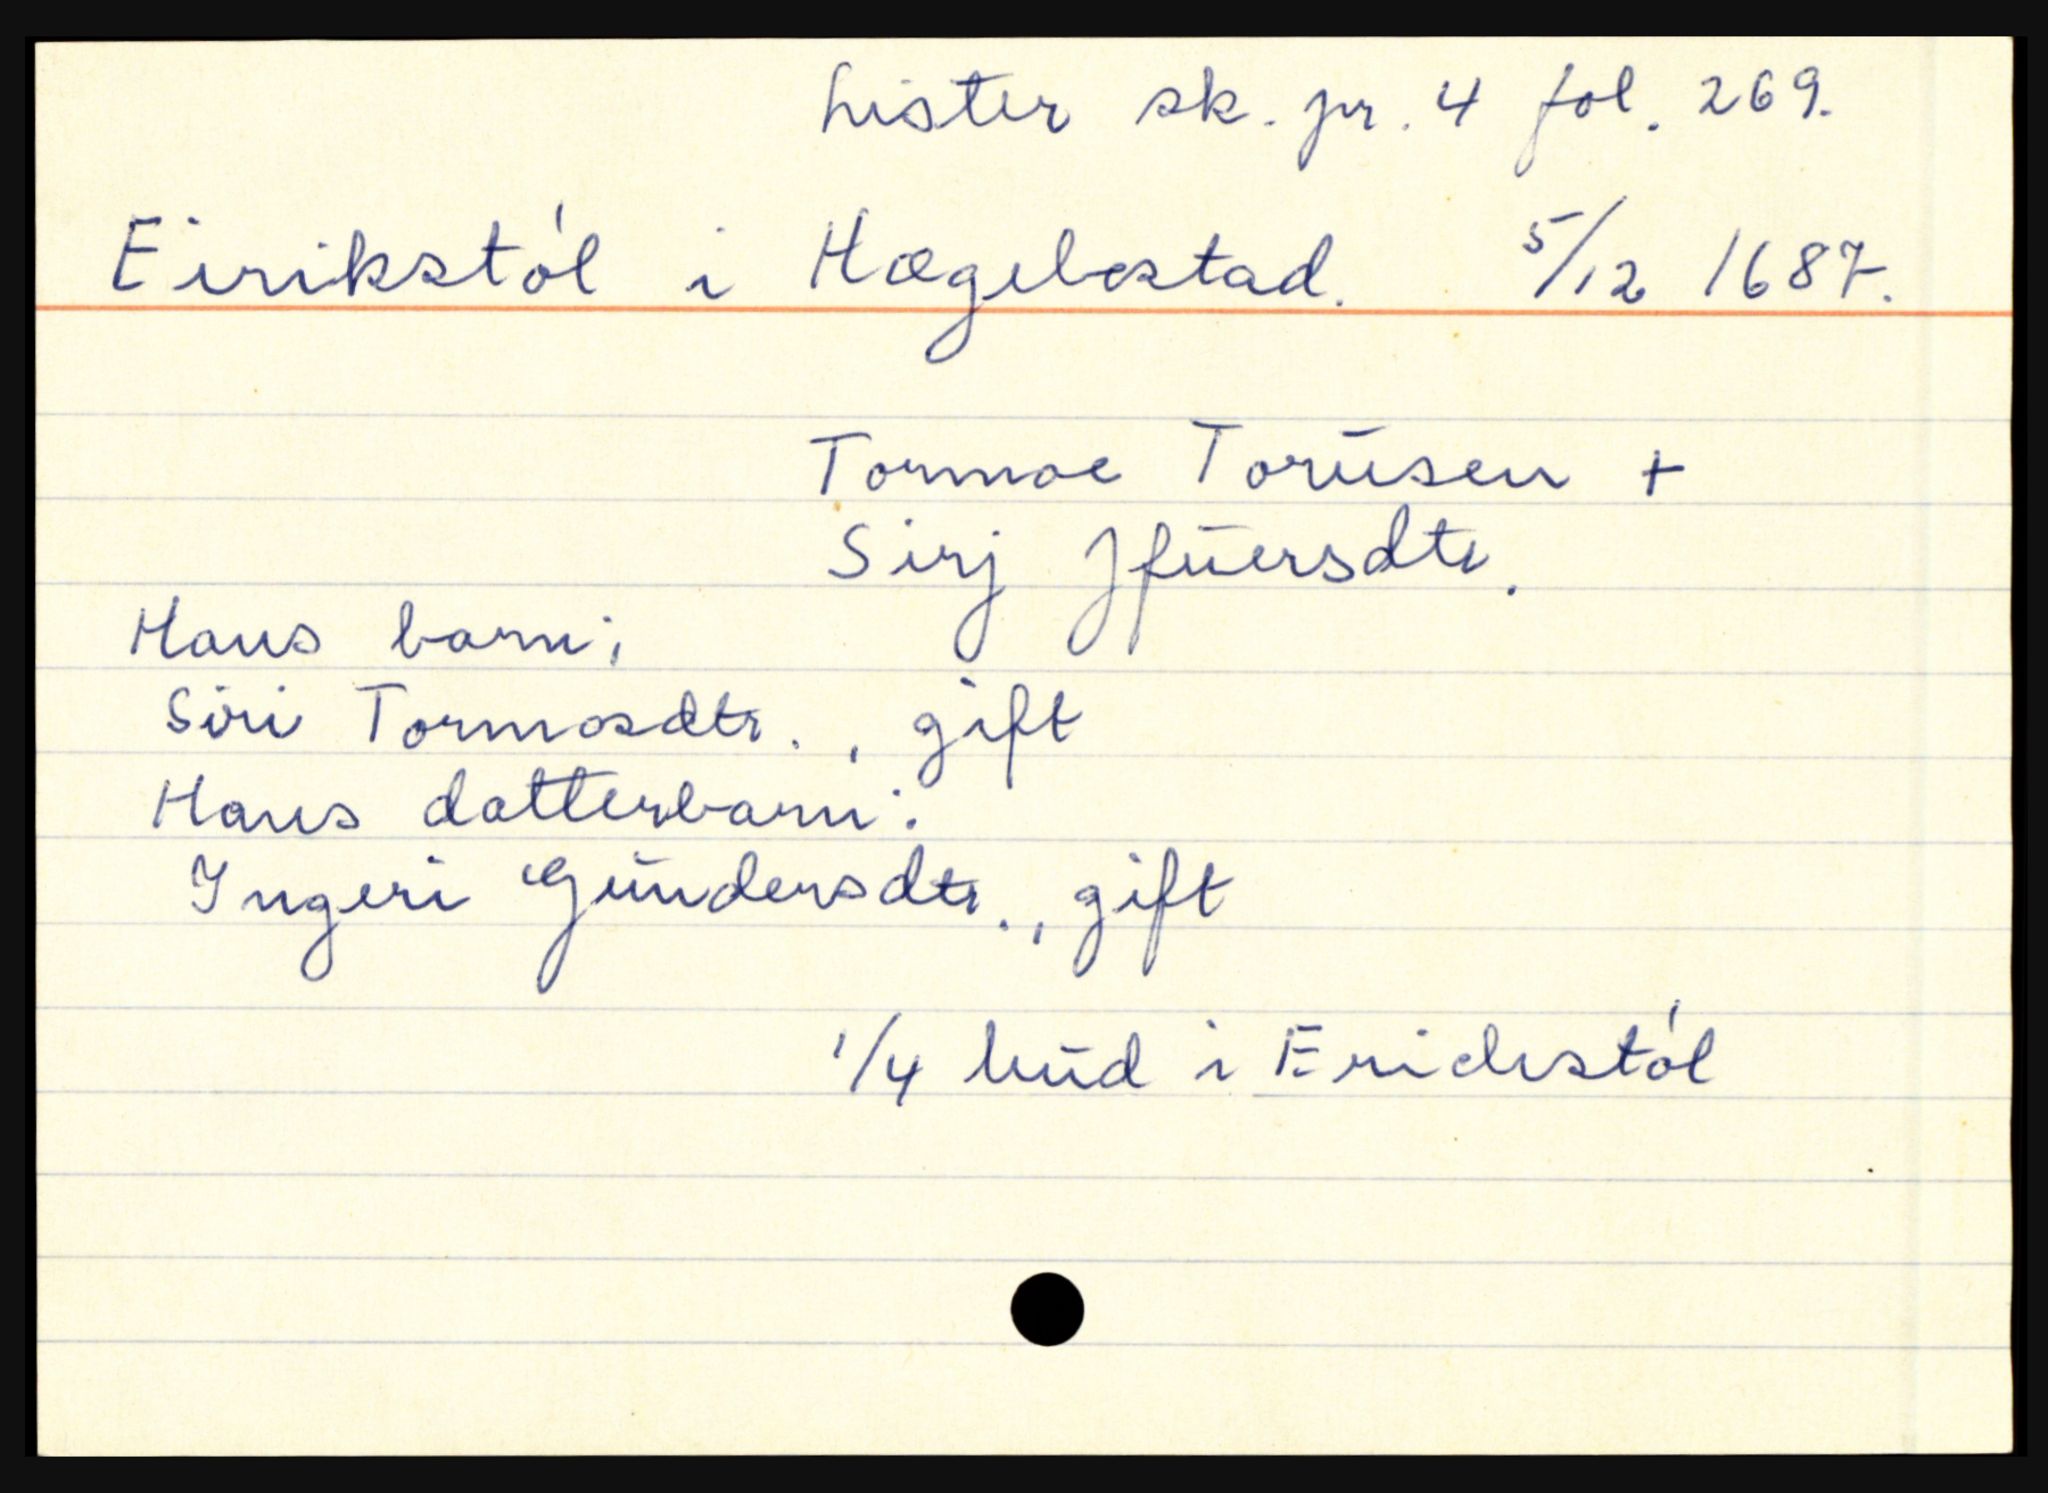 Lister sk. pr. 4 fol. 269.
Eirikstól i Hægebostad. 5/12 1687.
Tormoe Torūsen +
Sirj Jfūersdtr.
Hans barn:
Siri Tormosdtr., gift
Hans datterbarn:
Ingeri Gūndersdtr., gift
1/4 hūd i Erichstól